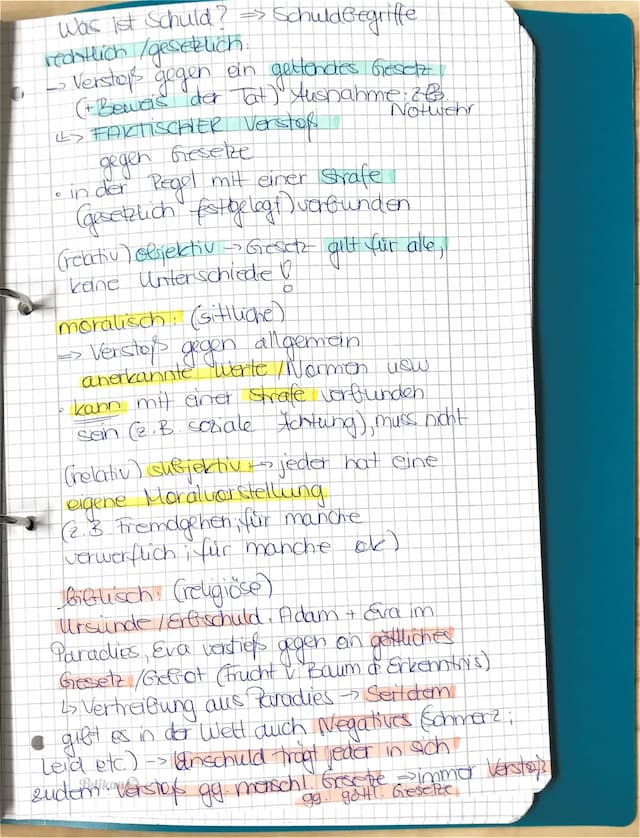 Was ist Schuld? => Schuldbegriffe
rechtlich/gesetzlich:
-> Verstoß gegen ein geltendes Gesetz
(+ Beweis der Tat) Ausnahme: z.B.
Notwehr
↳> FAKTISCHER Verstoß
gegen Gesetze
• in der Regel mit einer Strafe
(gesetzlich festgelegt) verbunden
(relativ) objektiv -> Gesetz gilt für alle,
keine Unterschiede!
moralisch: (sittliche)
=> Verstoß gegen allgemein
anerkannte Werte/Normen usw
• kann mit einer Strafe verbunden
sein (z.B. soziale Ächtung), muss nicht
(relativ) subjektiv -> jeder hat eine
eigene Moralvorstellung
(z.B Fremdgehen, für manche
verwerflich; für manche ok)
biblisch: (religiöse)
Ursünde/Erbschuld. Adam + Eva im
Paradies, Eva verstieß gegen ein göttliches
Gesetz/Gebot (Frucht v. Baum d. Erkenntnis)
↳ Vertreibung aus Paradies -> Seitdem
gibt es in der Welt auch Negatives (Schmerz;
Leid etc.) -> schuld trägt jeder in sich
zudem Verstoß gg. menschl. Gesetze => immer Verstoß
gg. göttl. Gesetze